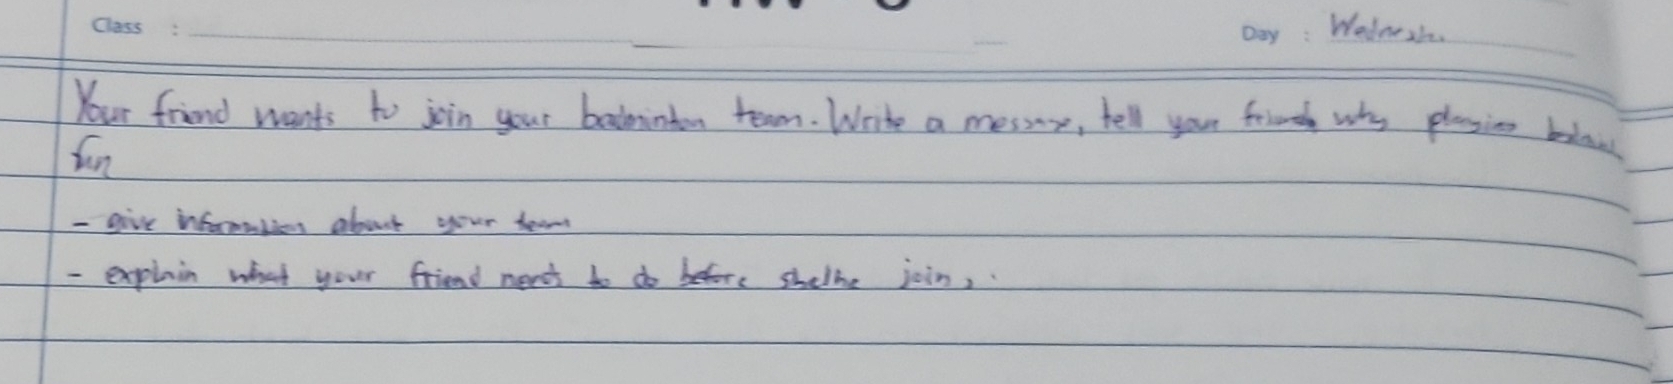 Class :
Day : Wednesday
Your friend wants to join your badminton team. Write a message, tell your friends why playing
fun
- give information about your team
- explain what your friend needs to do before she/he join,